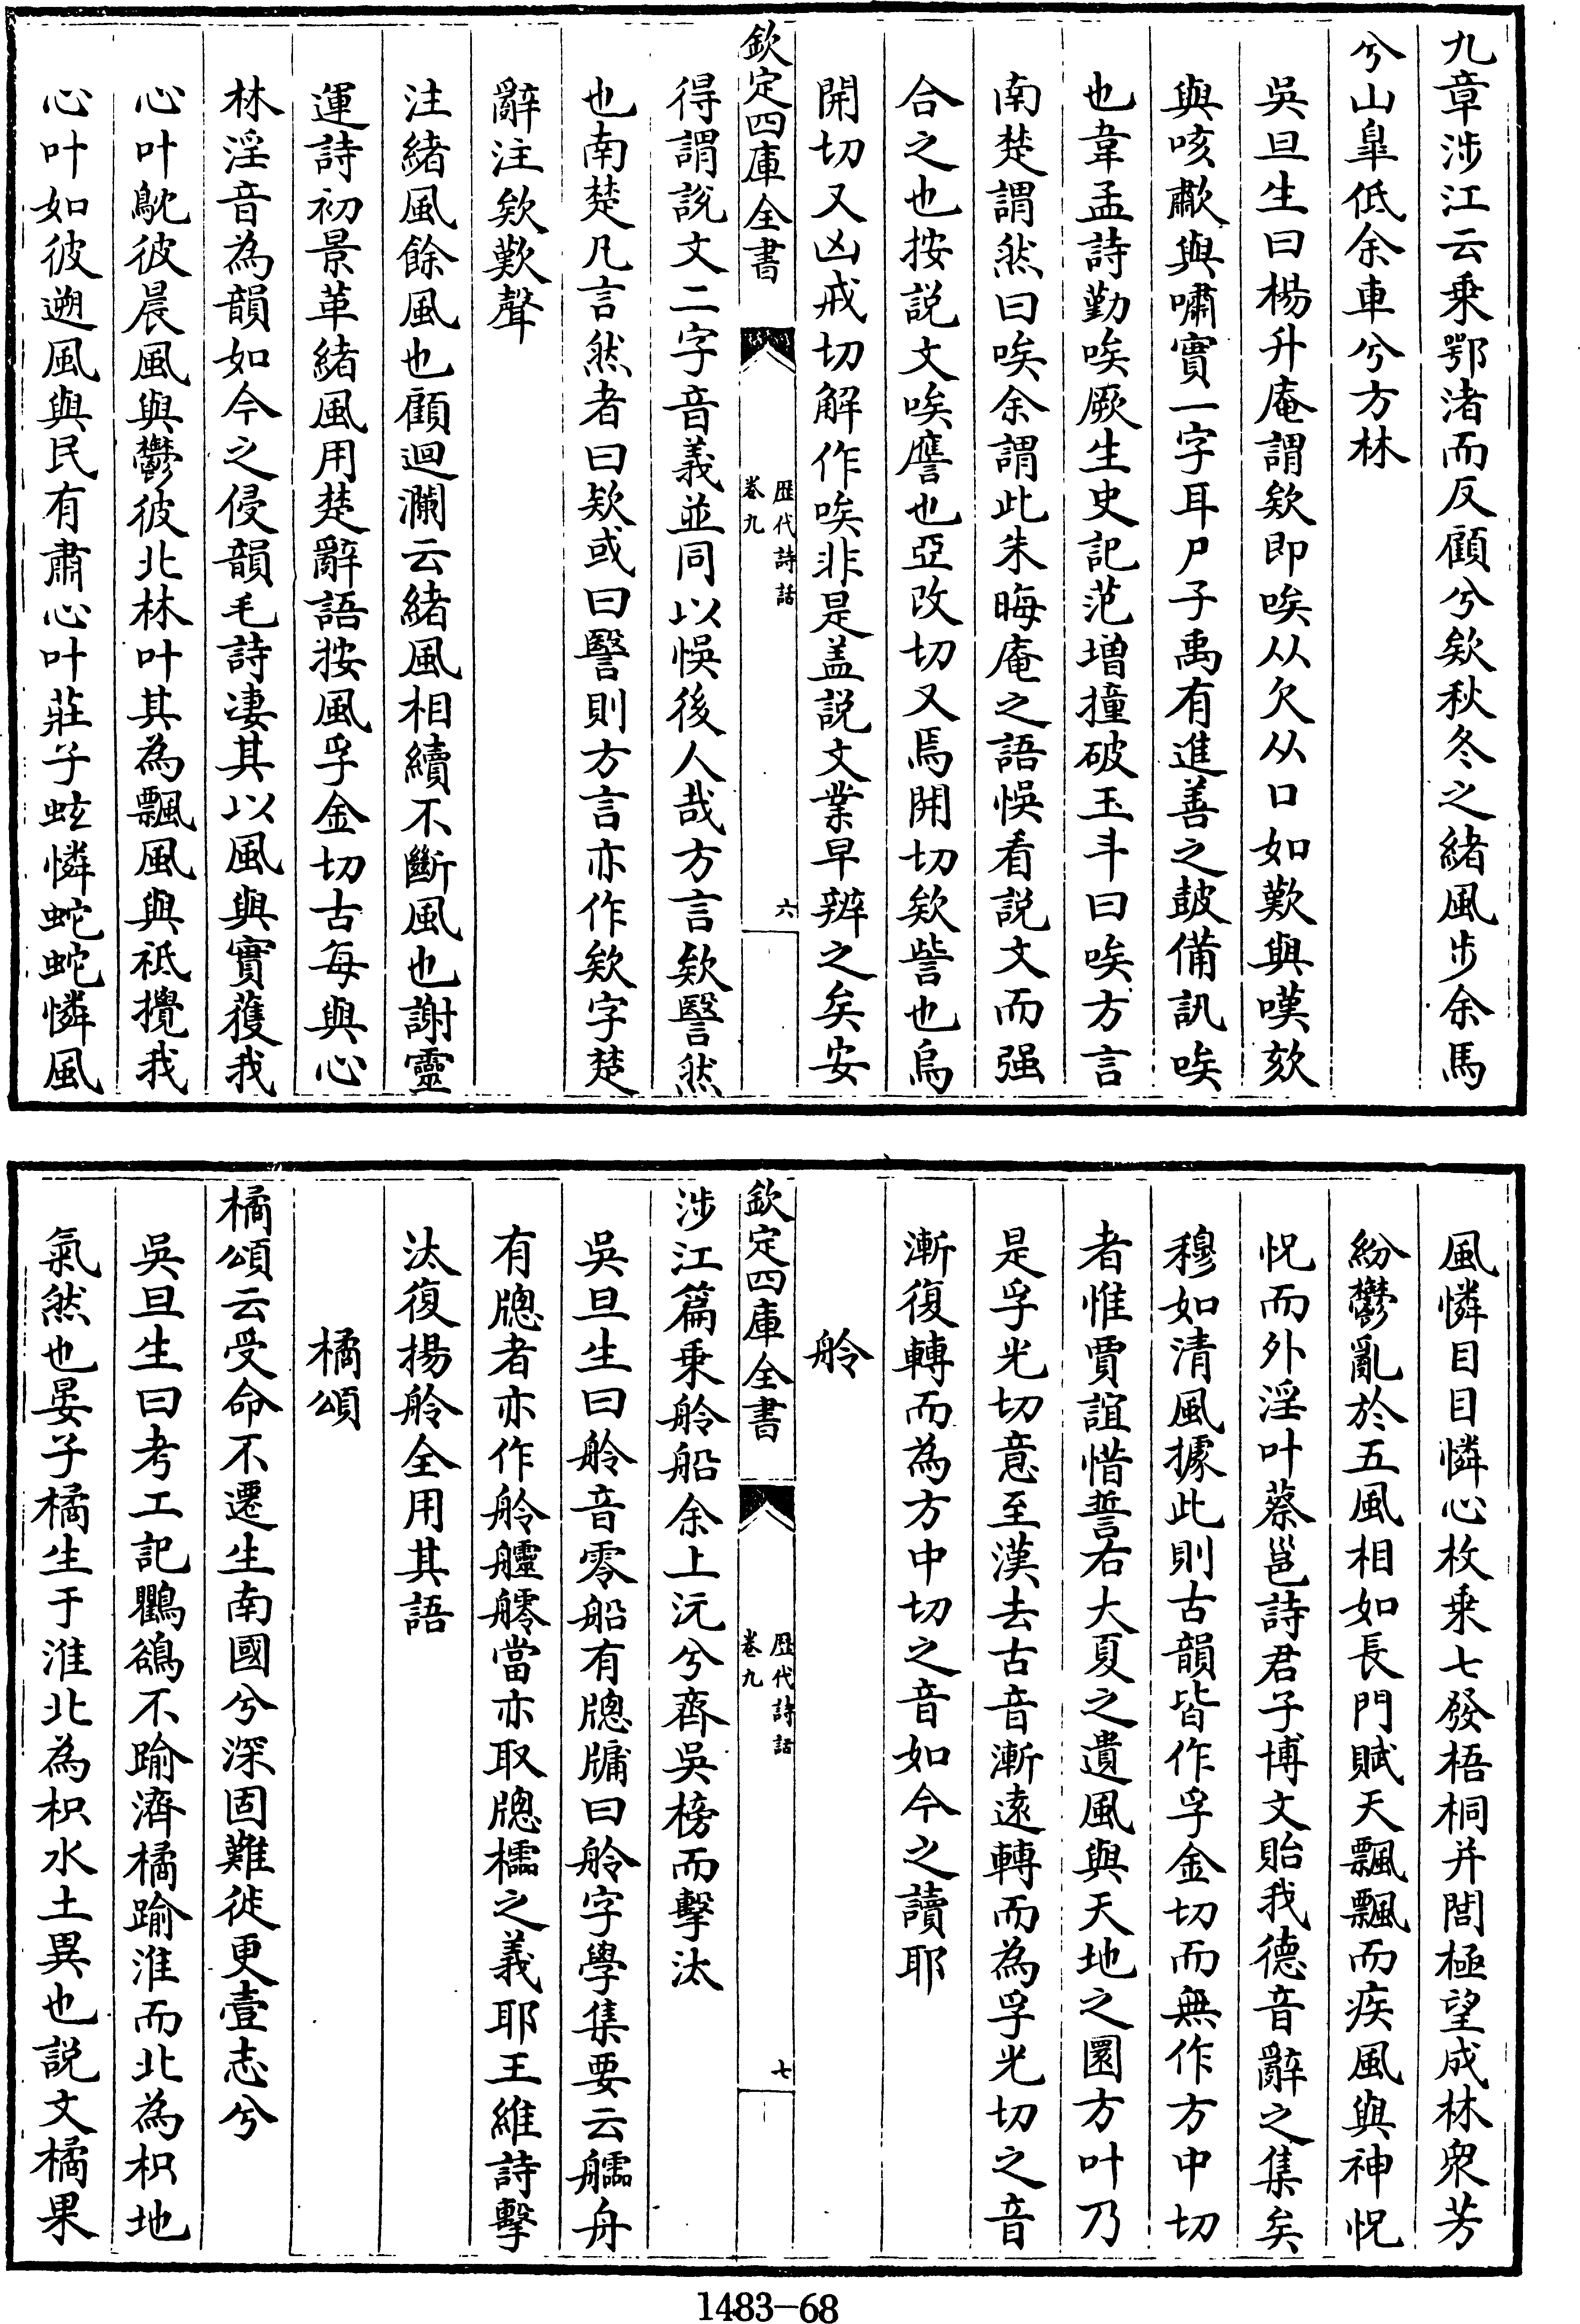 九章涉江云乗鄂渚而反顧兮欸秋冬之緒風步余馬
兮山臯低余車兮方林
吳旦生曰楊升庵謂欸即唉从欠从口如歎與嘆欬
與咳歗與嘯實一字耳尸子禹有進善之鼓備訊唉
也韋孟詩勤唉厥生史記范增撞破玉斗曰唉方言
南楚謂然曰唉余謂此朱晦庵之語悞看説文而强
合之也按説文唉譍也亞改切又焉開切欸訾也烏
開切又凶戒切解作唉非是盖説文業早辨之矣安
欽定四庫全書
歴代詩話
卷九
六
得謂説文二字音義並同以悞後人哉方言欸譥然
也南楚凡言然者曰欸或曰譥則方言亦作欸字楚
辭注欸歎聲
注緒風餘風也顧迴瀾云緒風相續不斷風也謝靈
運詩初景革緒風用楚辭語按風孚金切古每與心
林淫音為韻如今之侵韻毛詩凄其以風與實獲我
心叶鴥彼晨風與鬱彼北林叶其為飄風與祗攪我
心叶如彼遡風與民有肅心叶莊子蚿憐蛇蛇憐風
風憐目目憐心枚乗七發梧桐并閭極望成林衆芳
紛鬱亂於五風相如長門賦天飄飄而疾風與神怳
怳而外淫叶蔡邕詩君子博文貽我德音辭之集矣
穆如清風據此則古韻皆作孚金切而無作方中切
者惟賈誼惜誓右大夏之遺風與天地之圜方叶乃
是孚光切意至漢去古音漸遠轉而為孚光切之音
漸復轉而為方中切之音如今之讀耶
舲
欽定四庫全書
歴代詩話
卷九
七
涉江篇乗舲船余上沅兮齊吳榜而擊汰
吳旦生曰舲音零船有牕牖曰舲字學集要云艫舟
有牕者亦作舲艫艩當亦取牕櫺之義耶王維詩擊
汰復揚舲全用其語
橘頌
橘頌云受命不遷生南國兮深固難徙更壹志兮
吳旦生曰考工記鸜鵒不踰濟橘踰淮而北為枳地
氣然也晏子橘生于淮北為枳水土異也説文橘果
1483-68